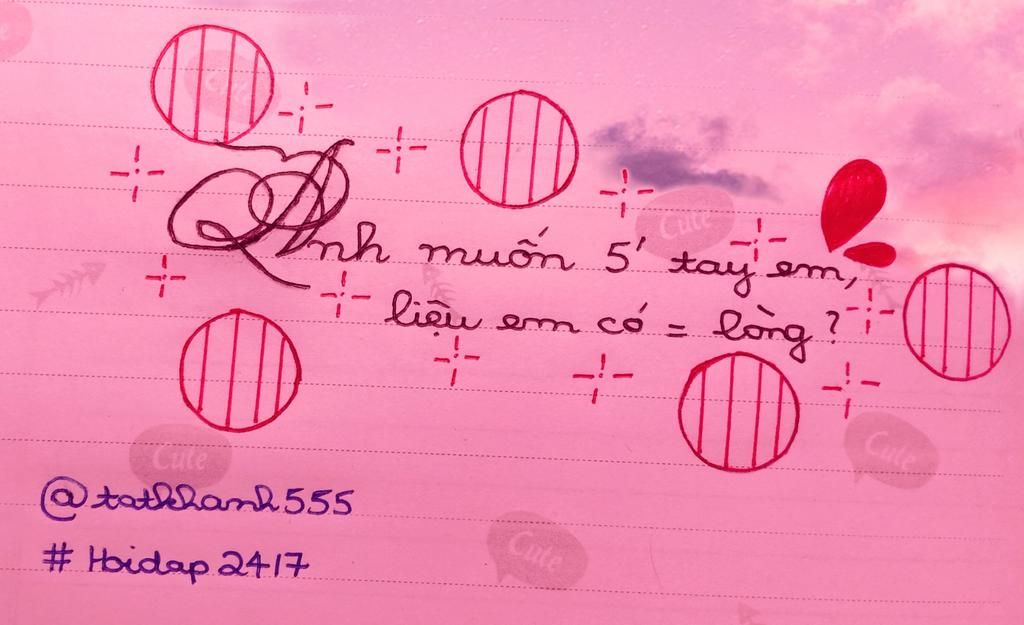 Cute
Anh muốn 5' tay em,
Cute
liệu em có = lòng?
Cute
Cute
@tatkhanh555
Cute
# Hoidap2417